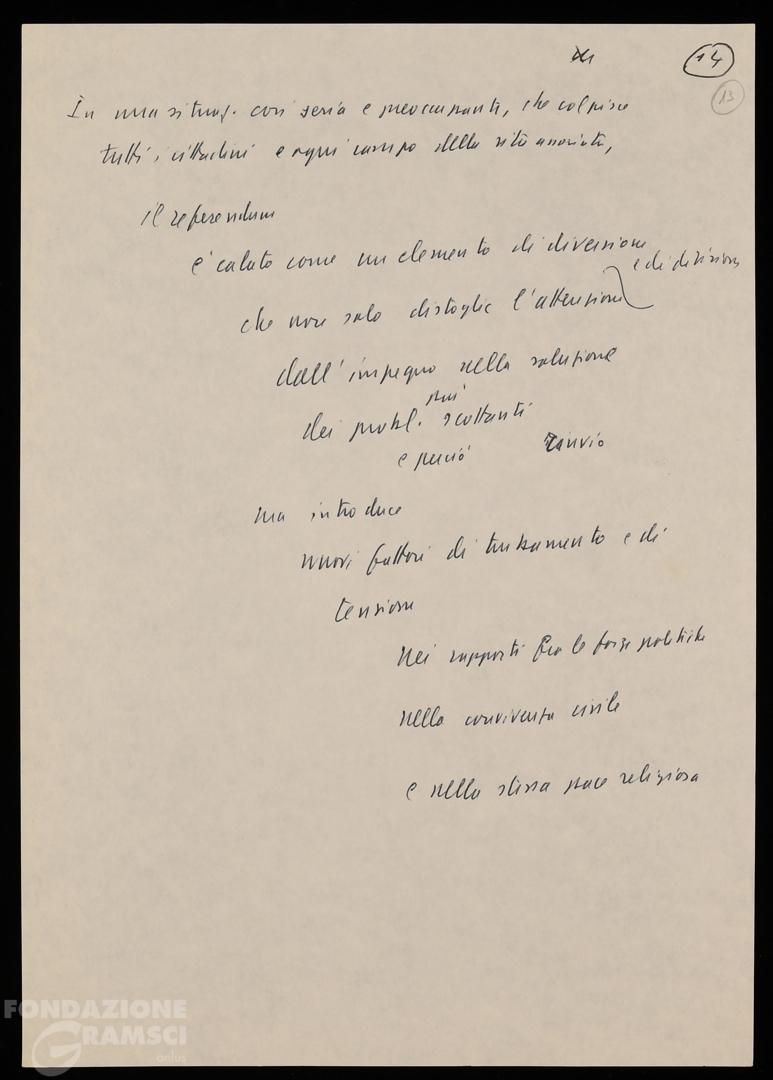 14
13
In una situaz. così seria e preoccupante, che colpisce
tutti i cittadini e ogni campo della vita associata,
il referendum
è calato come un elemento di diversione
e di divisione
che non solo distoglie l'attenzione
dall'impegno nella soluzione
più
dei probl. scottanti
e perciò rinvio
ma introduce
nuovi fattori di turbamento e di
tensione
nei rapporti fra le forze politiche
nella convivenza civile
e nella stessa pace religiosa
FONDAZIONE
GRAMSCI
onlus